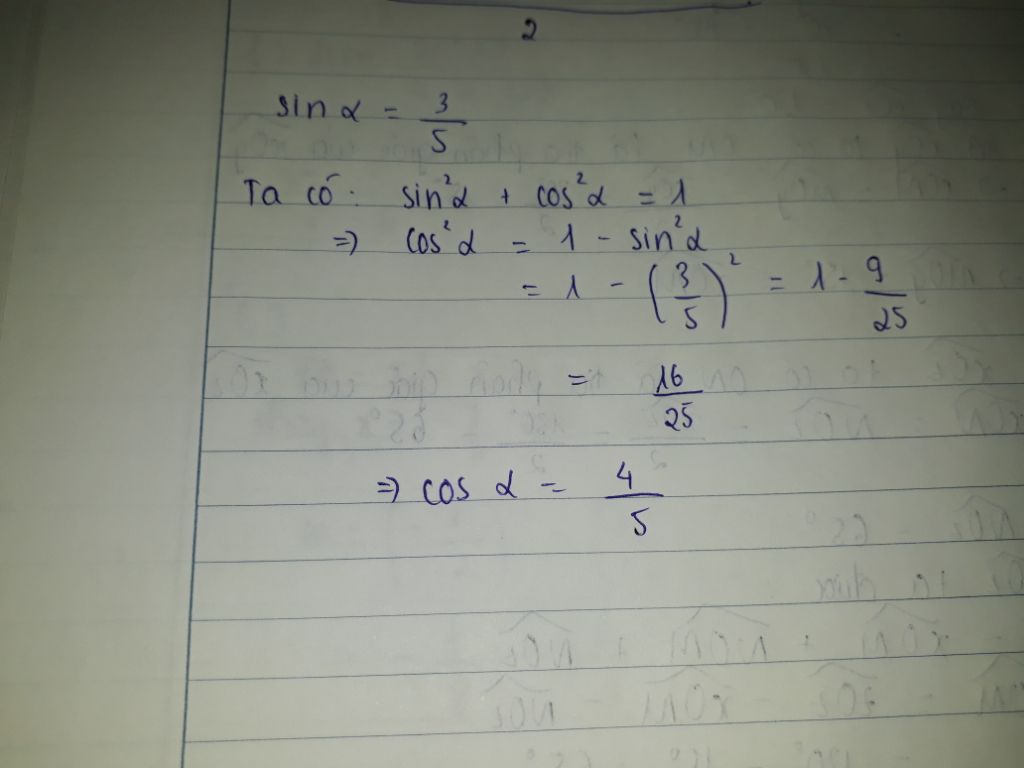 2
sin α = 3/5
Ta có: sin²α + cos²α = 1
=> cos²α = 1 - sin²α
= 1 - (3/5)² = 1 - 9/25
= 16/25
=> cos α = 4/5